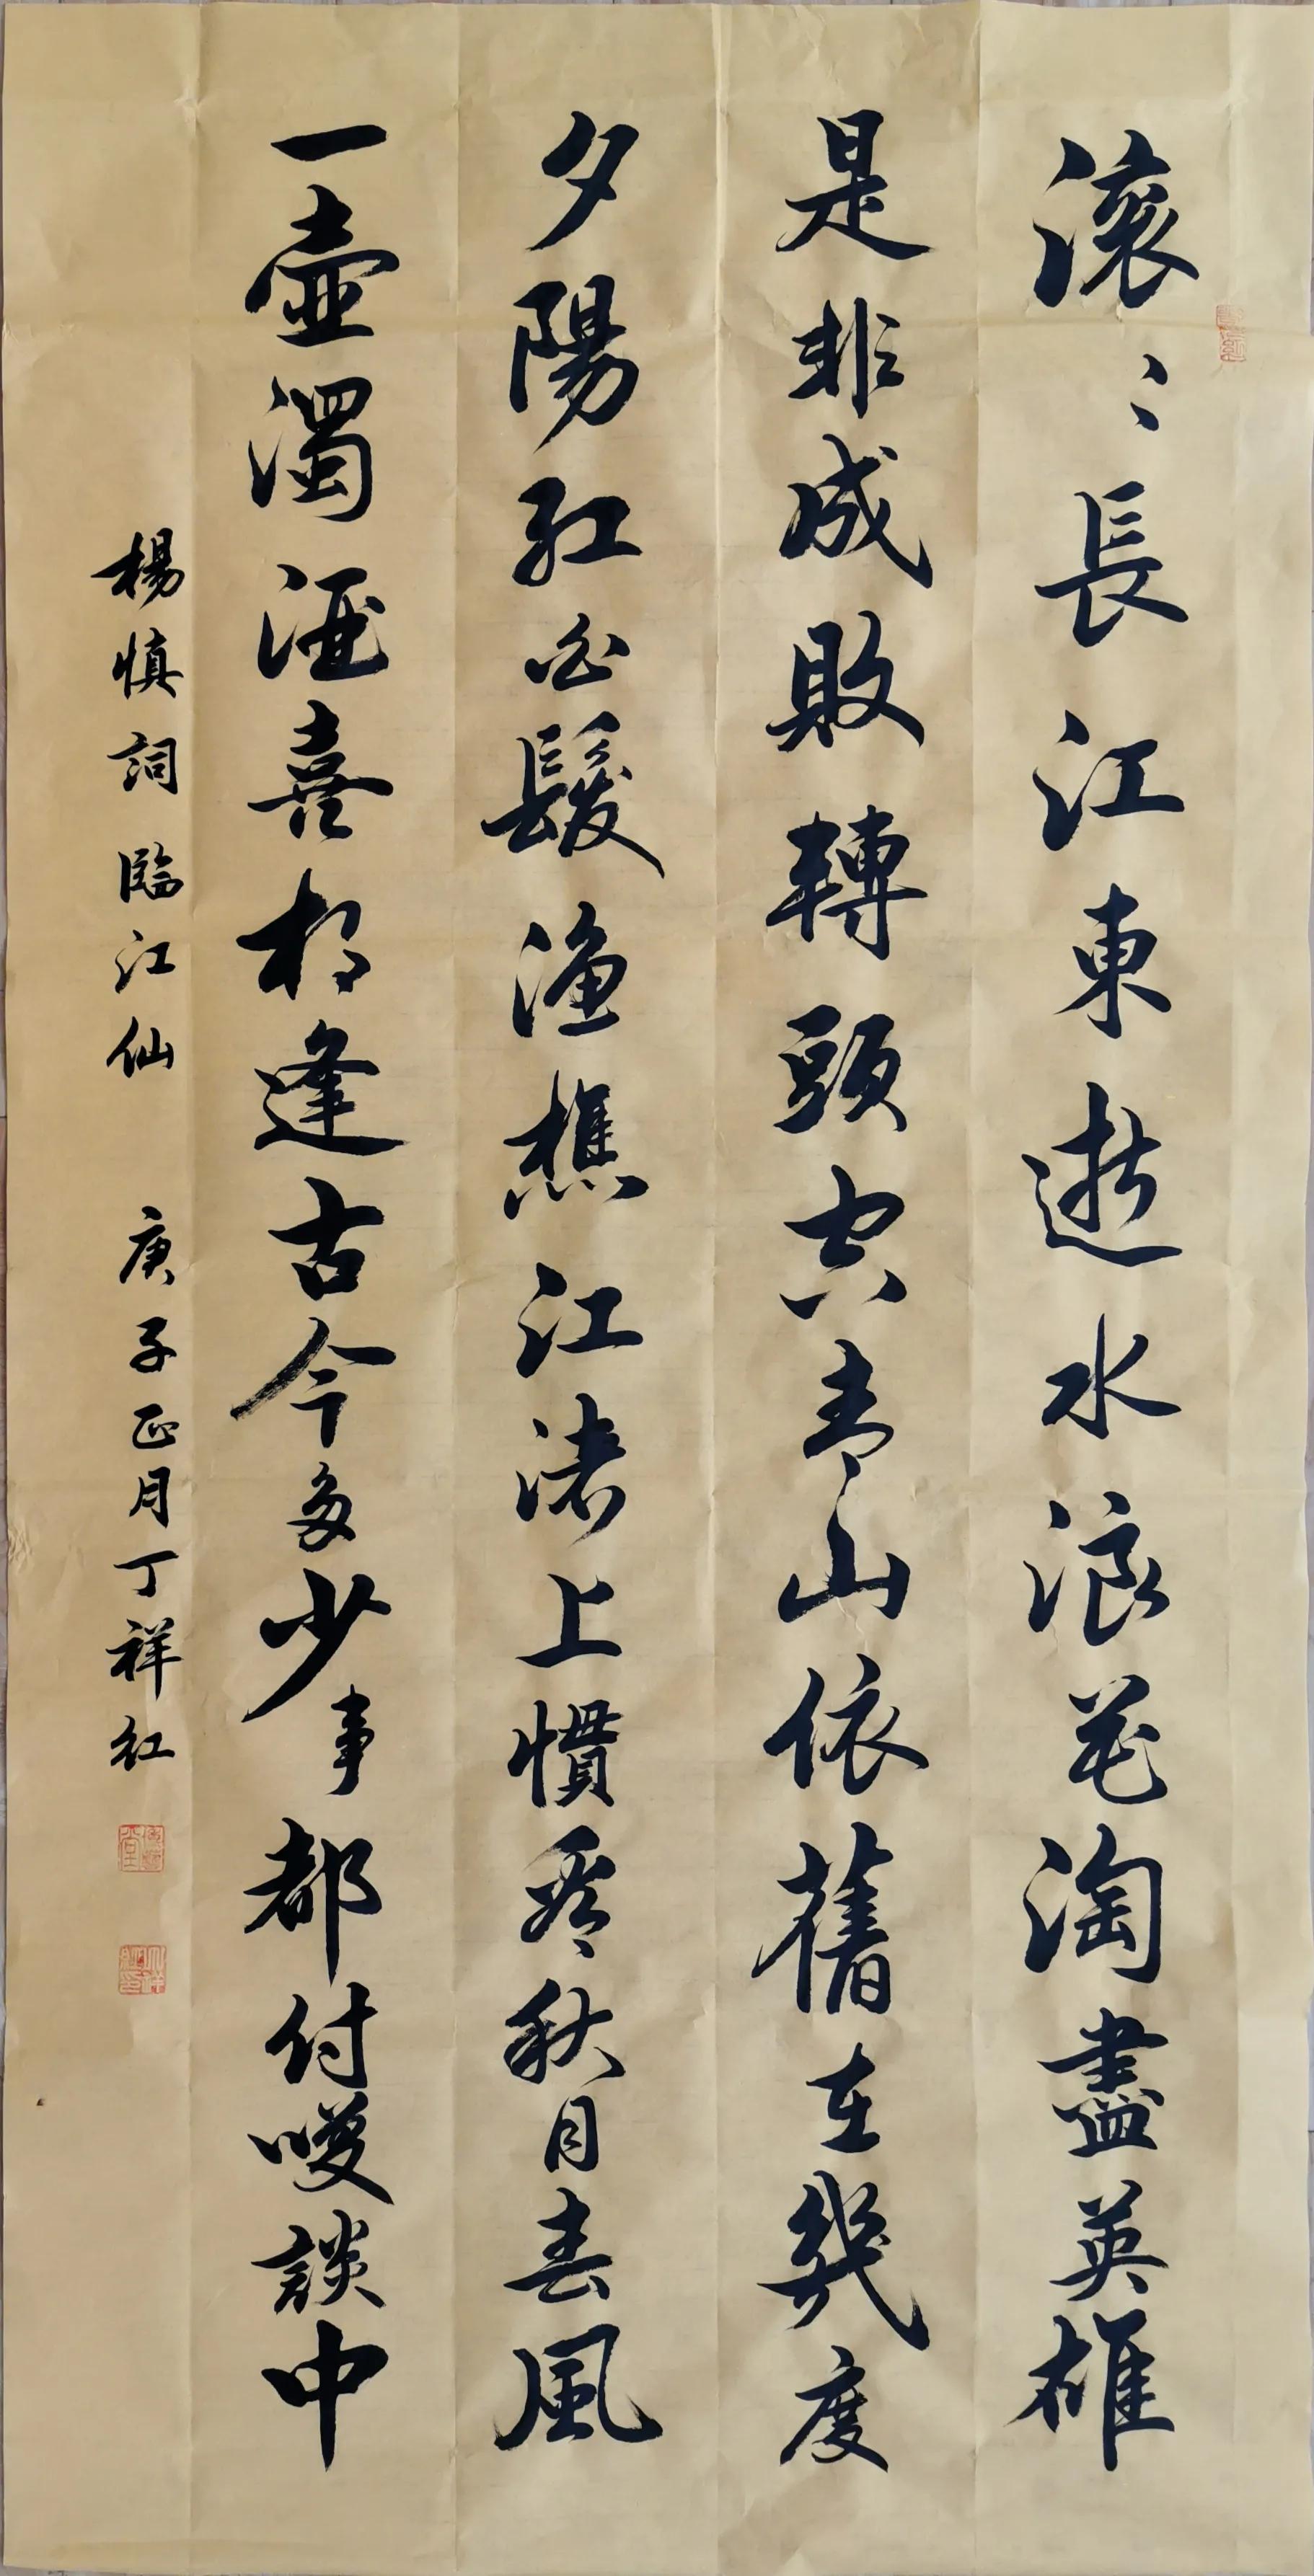 滚〻長江東逝水浪花淘盡英雄
是非成敗轉頭空青山依舊在幾度
夕陽紅白髮漁樵江渚上慣看秋月春風
一壺濁酒喜相逢古今多少事都付笑談中
楊慎詞臨江仙 庚子正月丁祥红